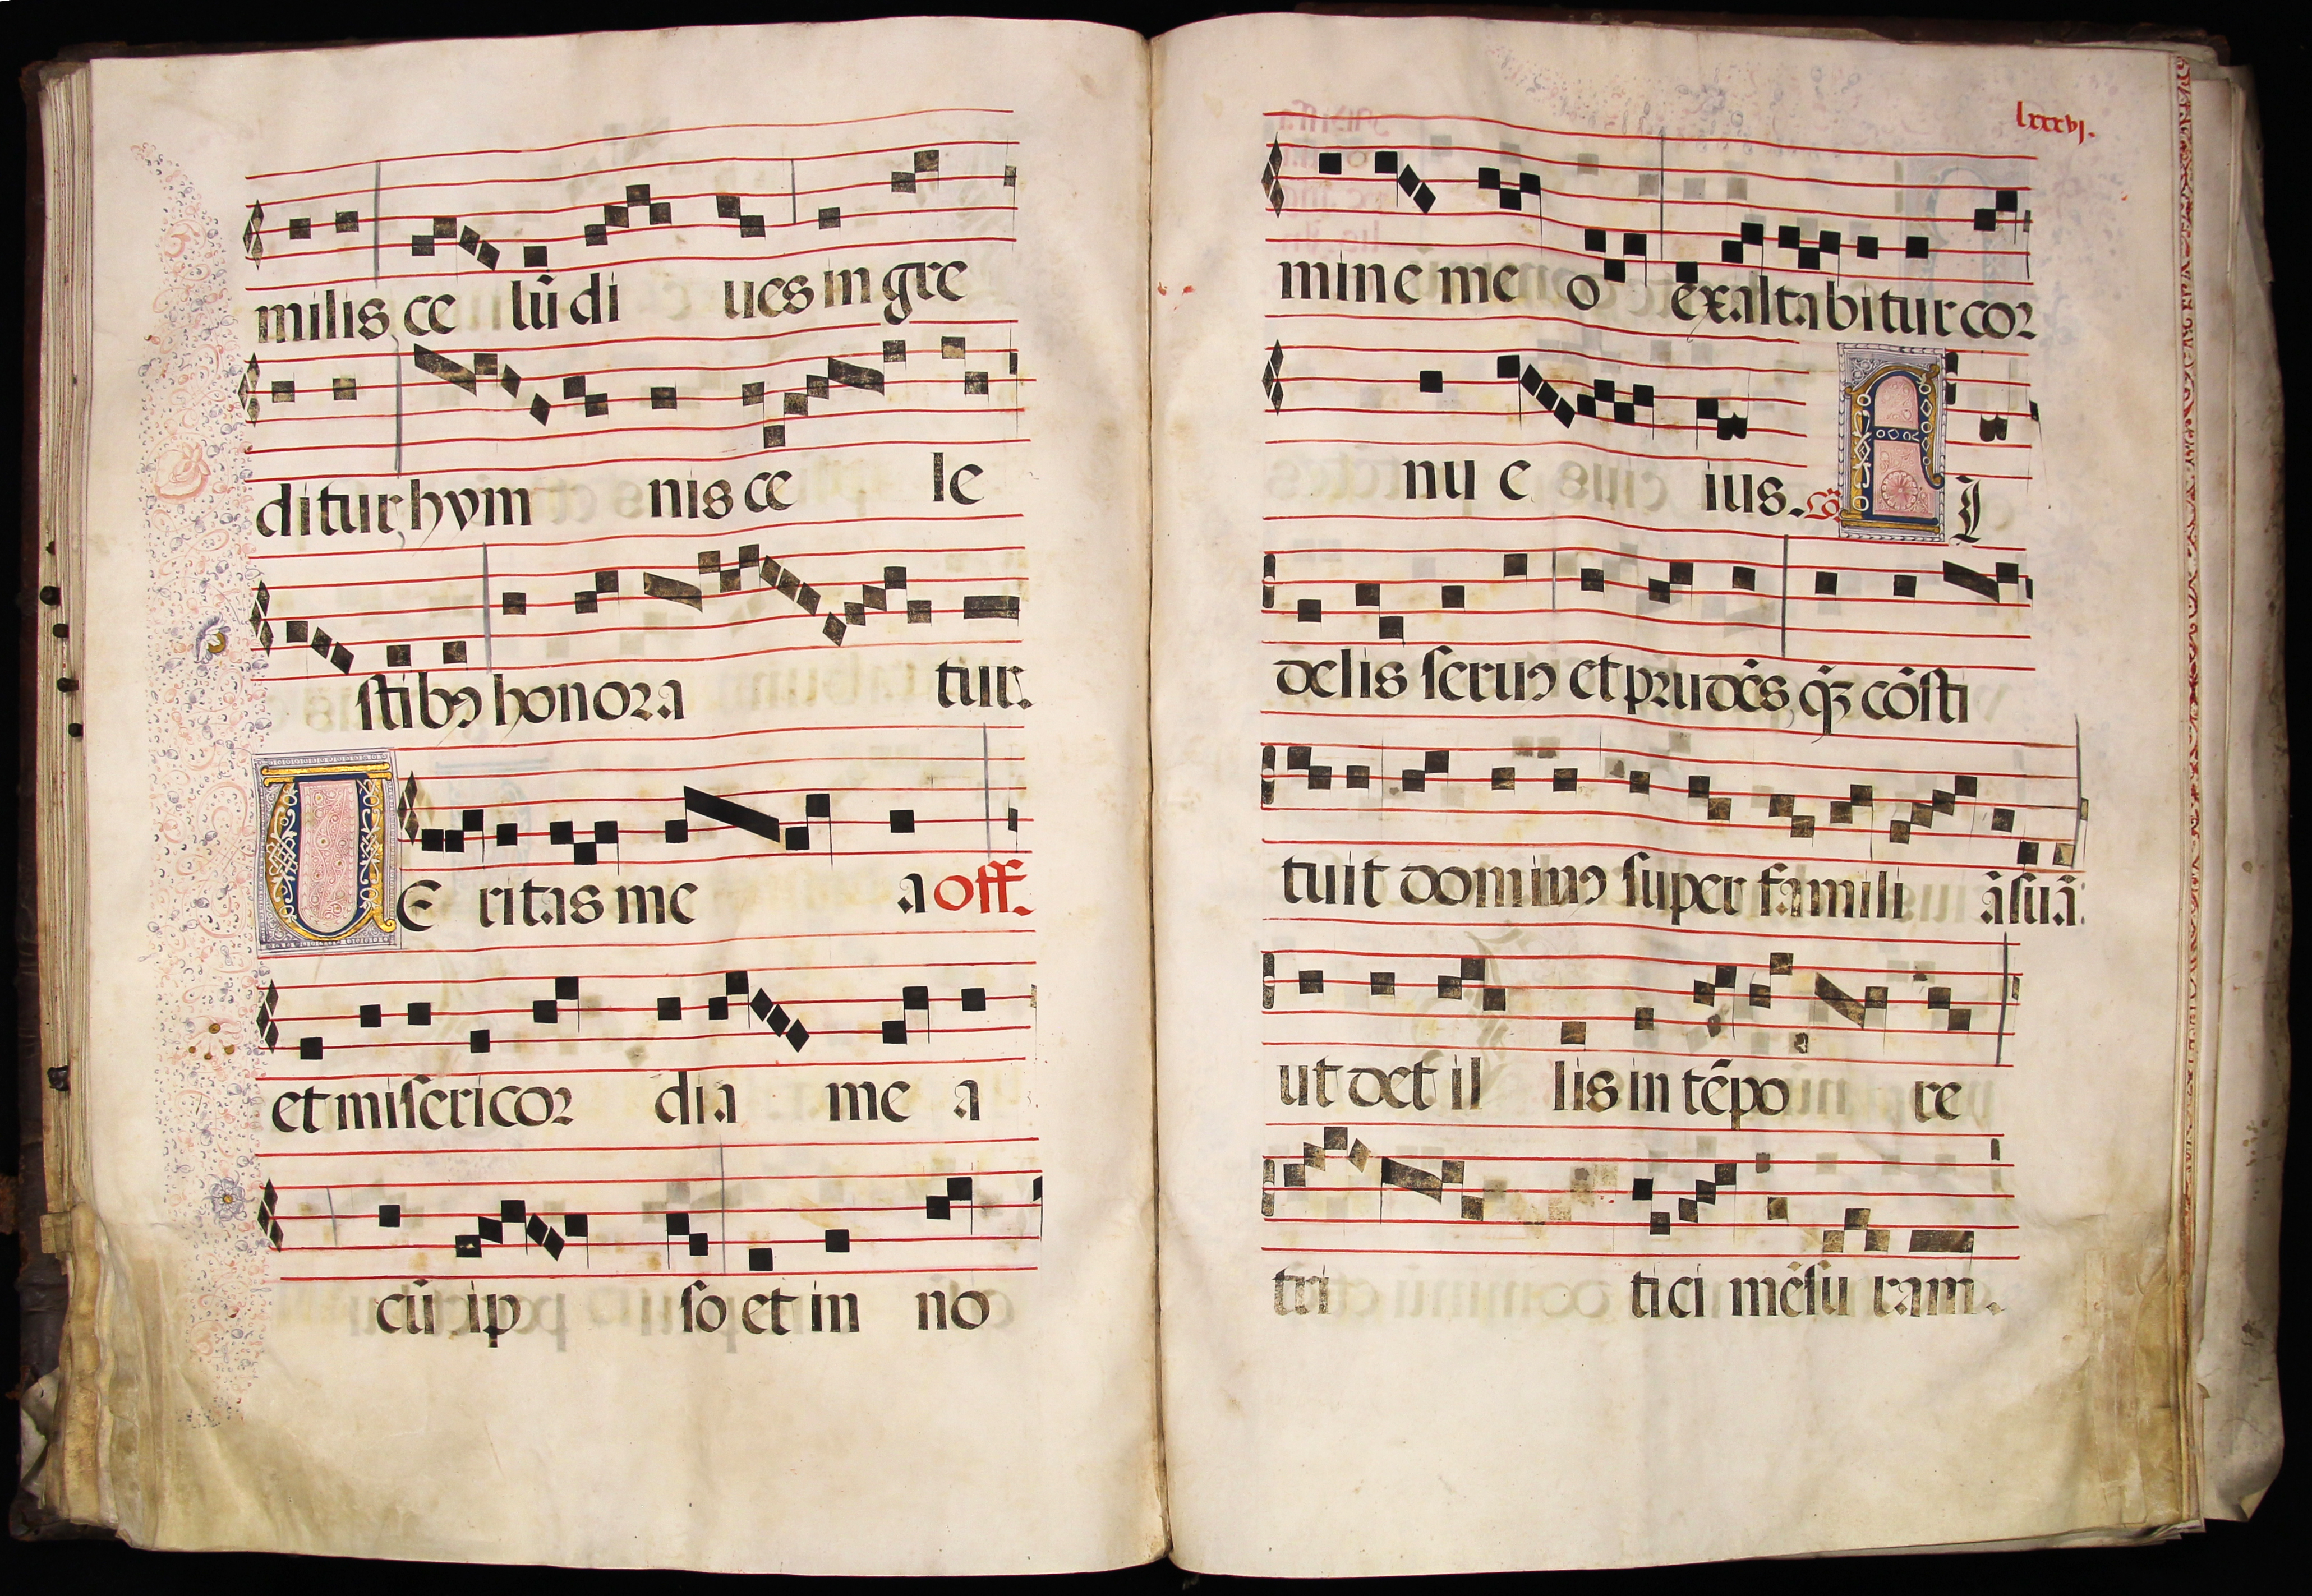 milis ce lū di ues in gre
ditur, hym nis ce le
stibꝯ honora tur.
VE ritas me a off.
et misericor dia me a
cū ip so et in no
lxxxvj.
mine me o exaltabitur cor
nu e ius. Cō. FI
delis seruꝯ et prudēs, q̄ꝫ cōsti
tuit dominꝯ super famili ā suā:
ut det il lis in tēpo re
tri tici mēsu ram.